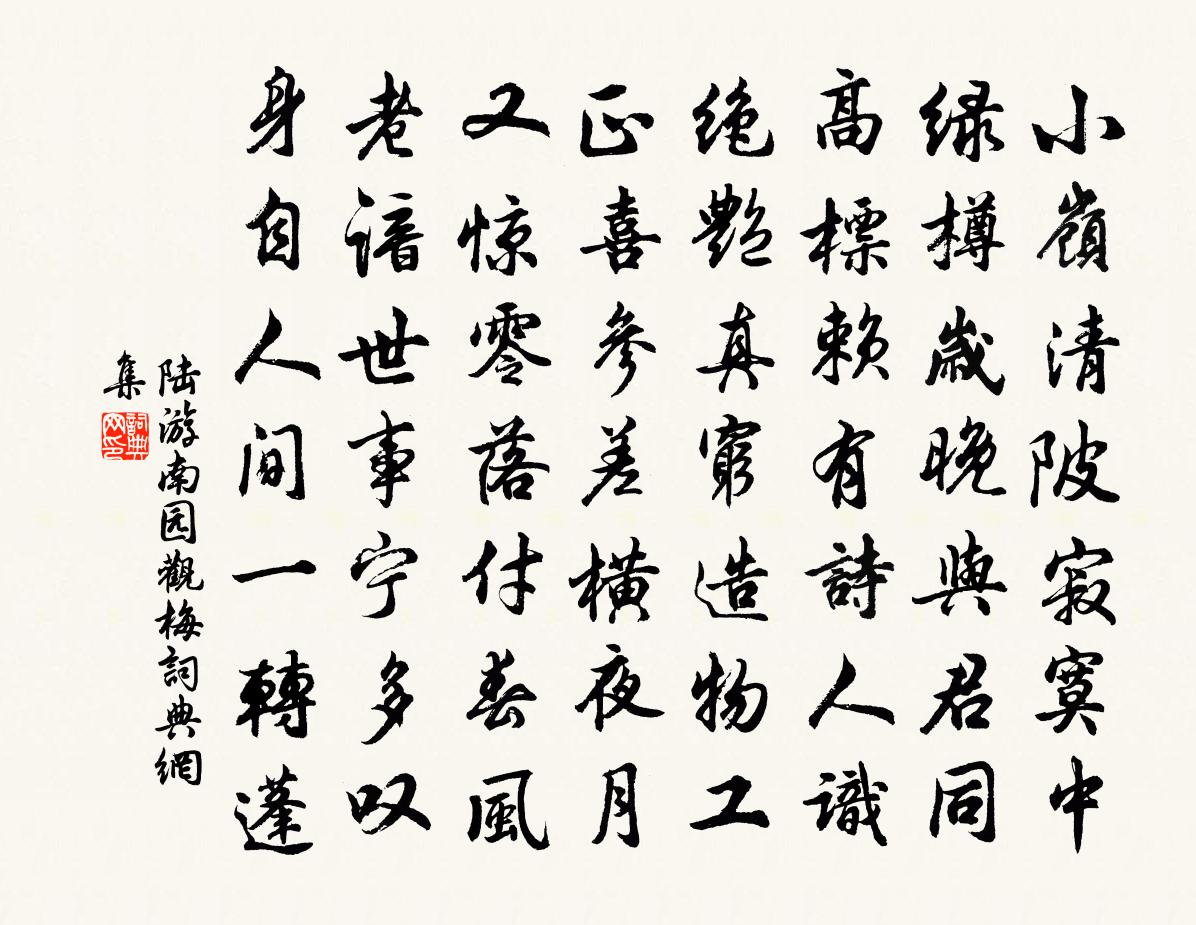 小嶺清陂寂寞中
绿樽歲晚與君同
高標赖有詩人識
绝艷真窮造物工
正喜參差横夜月
又惊零落付春風
老谙世事宁多叹
身自人间一轉蓬
陆游南园觀梅詞典網
集
詞典
网印